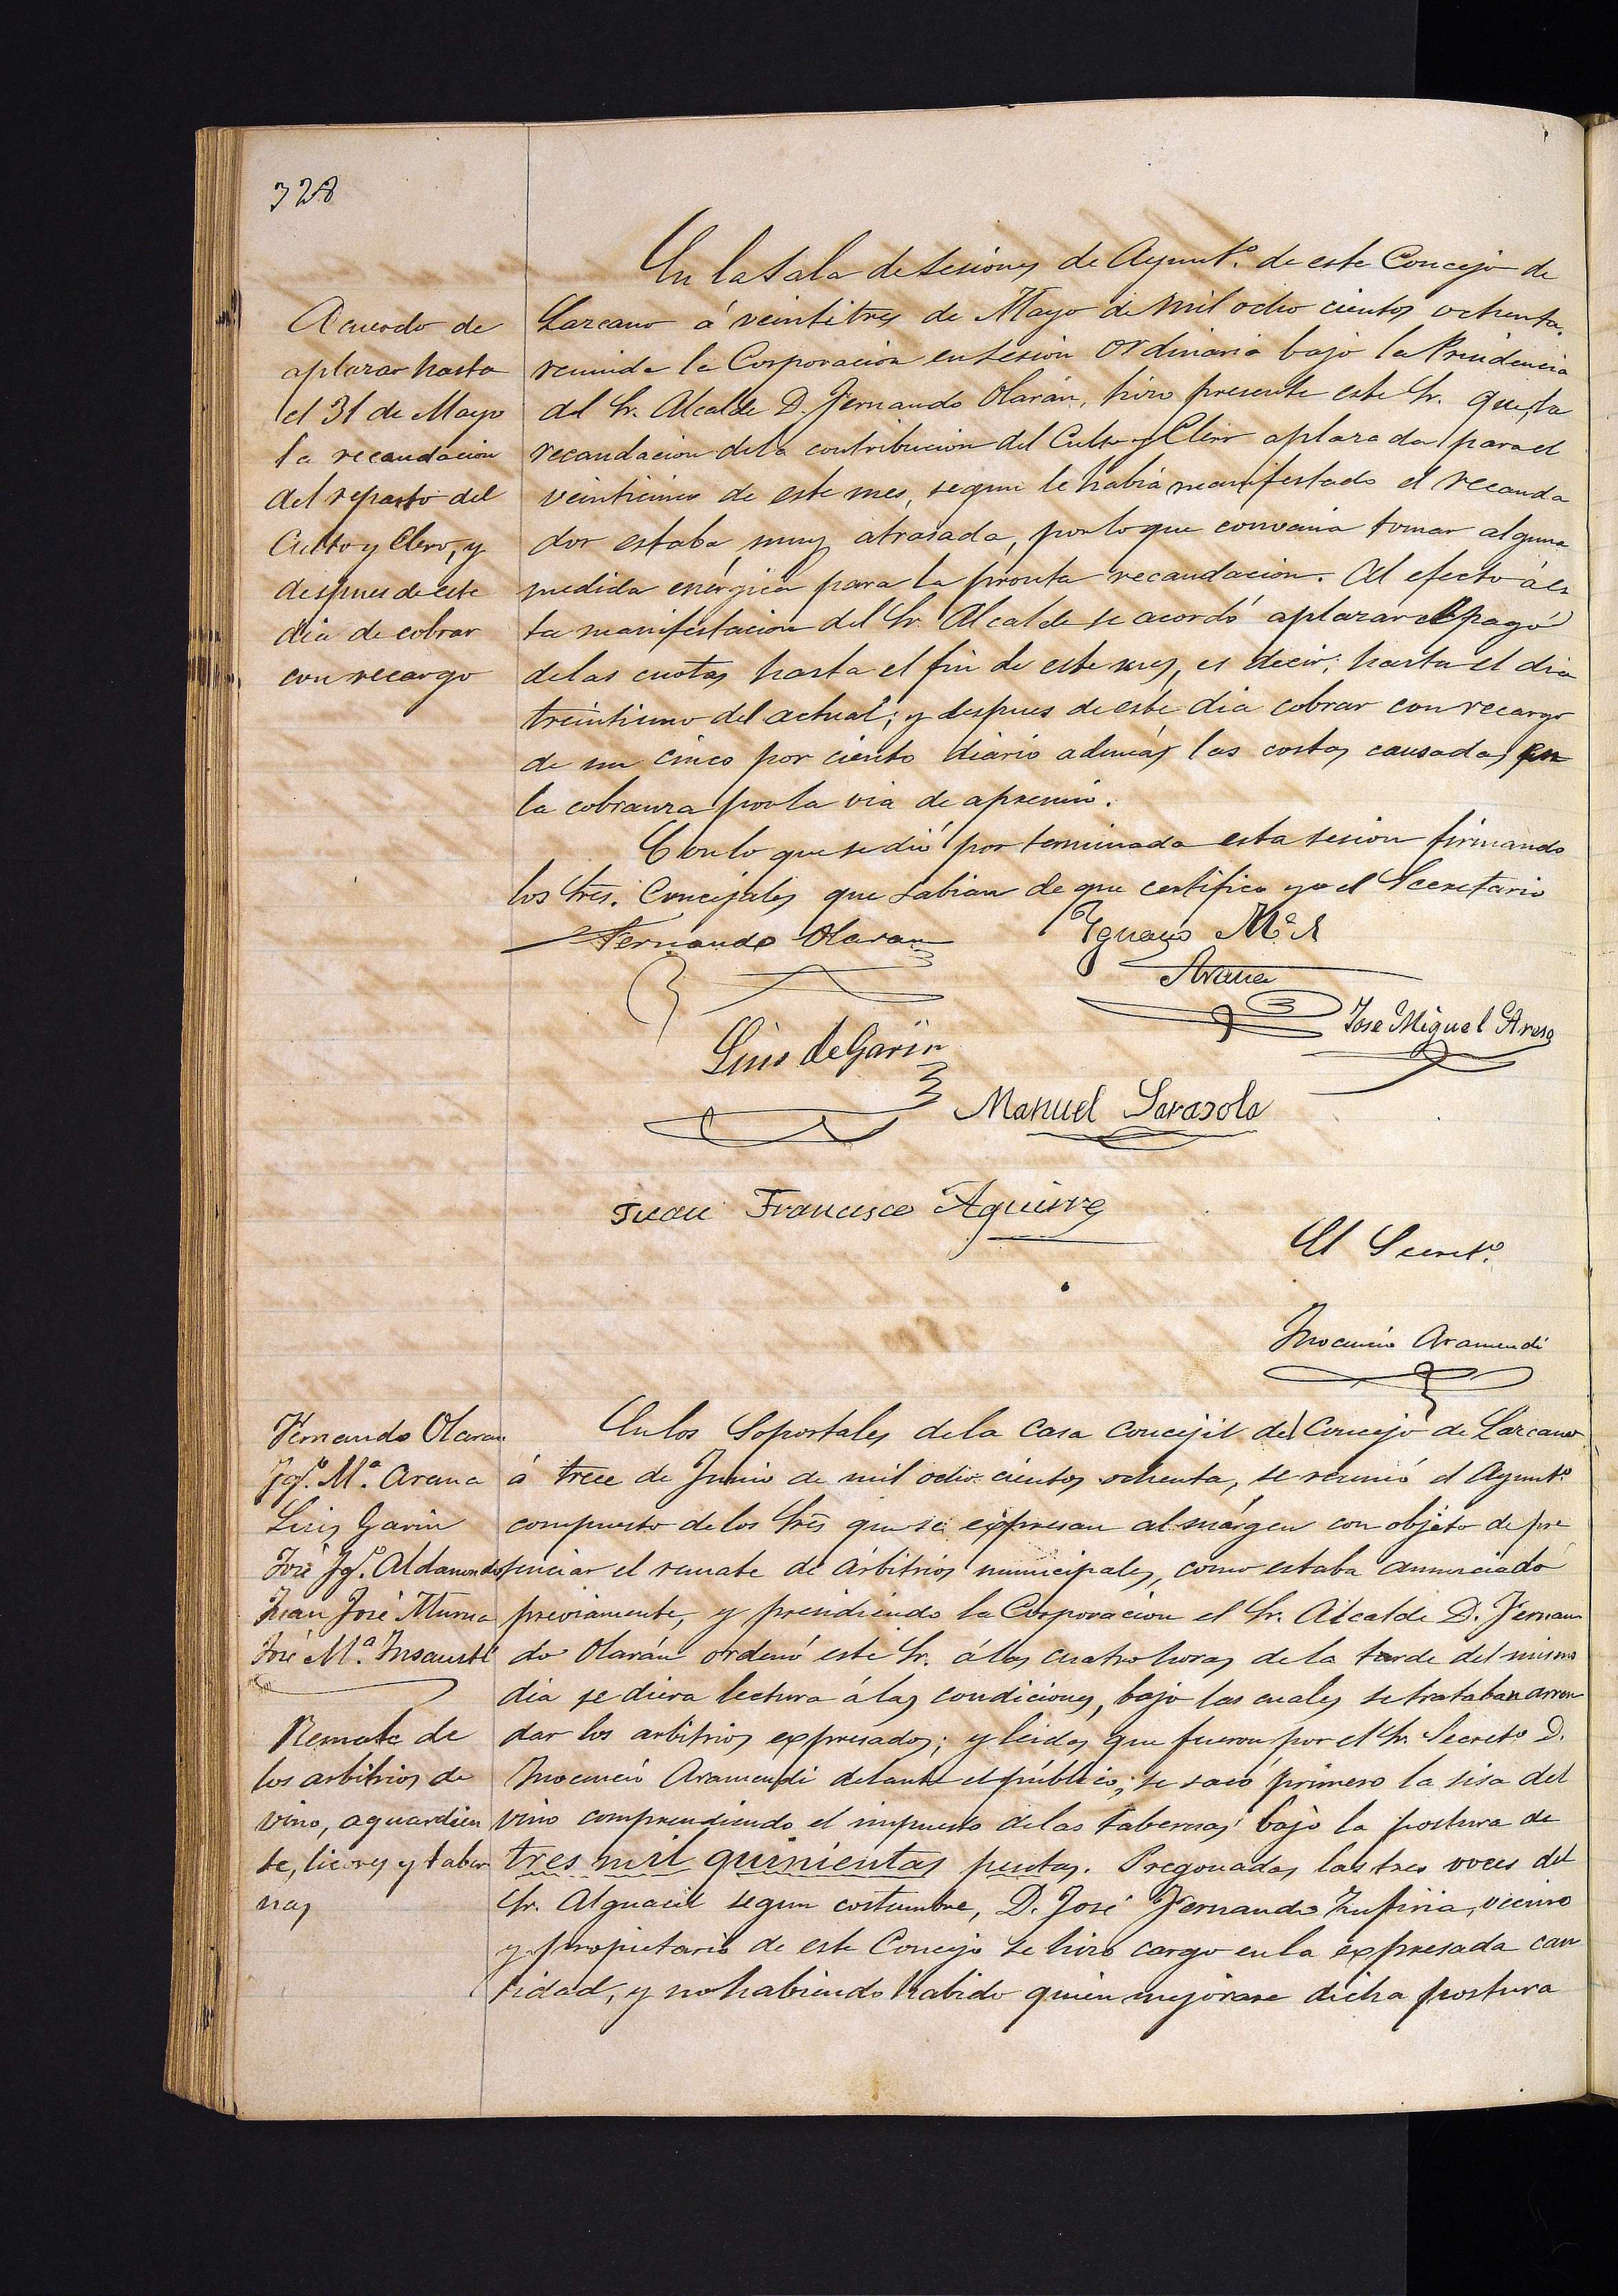 328
Acuerdo de
aplazar hasta
el 31 de Mayo
la recaudacion
del reparto del
Culto y Clero, y
despues de este
dia de cobrar
con recargo
En la Sala de Sesiones de Ayunt.º de este Concejo de
Lazcano á veintitres de Mayo de mil ocho cientos ochenta,
reunida la Corporacion en sesion ordinaria bajo la Presidencia
del Sr. Alcalde D. Fernando Olarán, hizo presente este Sr. que, la
recaudacion de la contribucion del Culto y Clero aplazada para el
veinticinco de este mes, segun le había manifestado el recauda
dor estaba muy atrasada, por lo que convenia tomar alguna
medida enérgica para la pronta recaudacion. Al efecto á es
ta manifestacion del Sr. Alcalde se acordó aplazar el pago
de las cuotas hasta el fin de este mes, es decir, hasta el dia
treintiuno del actual; y despues de este dia cobrar con recargo
de un cinco por ciento diario además las costas causadas en
la cobranza por la via de apremio.
Con lo que se dió por terminada esta sesion firmando
los Sres. Concejales que sabian de que certifico yo el Secretario
Fernando Olaran
Ygnacio M.ª
Arana
Jose Miguel
Luis de Garin
Manuel Sarasola
Juan Francisco Aguirre
El Secret.º
Inocencio Aramendi
Fernando Olaran
Jgº. M.ª Arana
Luis Garin
José Jgº. Aldanondo
Juan José Murua
José M.ª Insausti
Remate de
los arbitrios de
vino, aguardien
te, licores y taber
nas
En los Soportales de la Casa Concejil del Concejo de Lazcano
á trece de Junio de mil ocho cientos ochenta, se reunió el Ayunt.º
compuesto de los Sres que se expresan al márgen con objeto de pre
senciar el remate de árbitrios municipales, como estaba anunciado
previamente, y presidiendo la Corporacion el Sr. Alcalde D. Fernan
do Olarán ordenó este Sr. á las cuatro horas de la tarde del mismo
dia se diera lectura á las condiciones, bajo las cuales se trataban arren
dar los arbitrios expresados; y leidas que fueron por el Sr. Secretº D.
Inocencio Aramendi delante el público, se sacó primero la sisa del
vino comprendiendo el impuesto de las tabernas bajo la postura de
tres mil quinientas pesetas. Pregonadas las tres voces del
Sr. Alguacil segun costumbre, D. José Fernando Zufiria, vecino
y propietario de este Concejo se hizo cargo en la expresada can
tidad, y no habiendo habido quien mejorase dicha postura